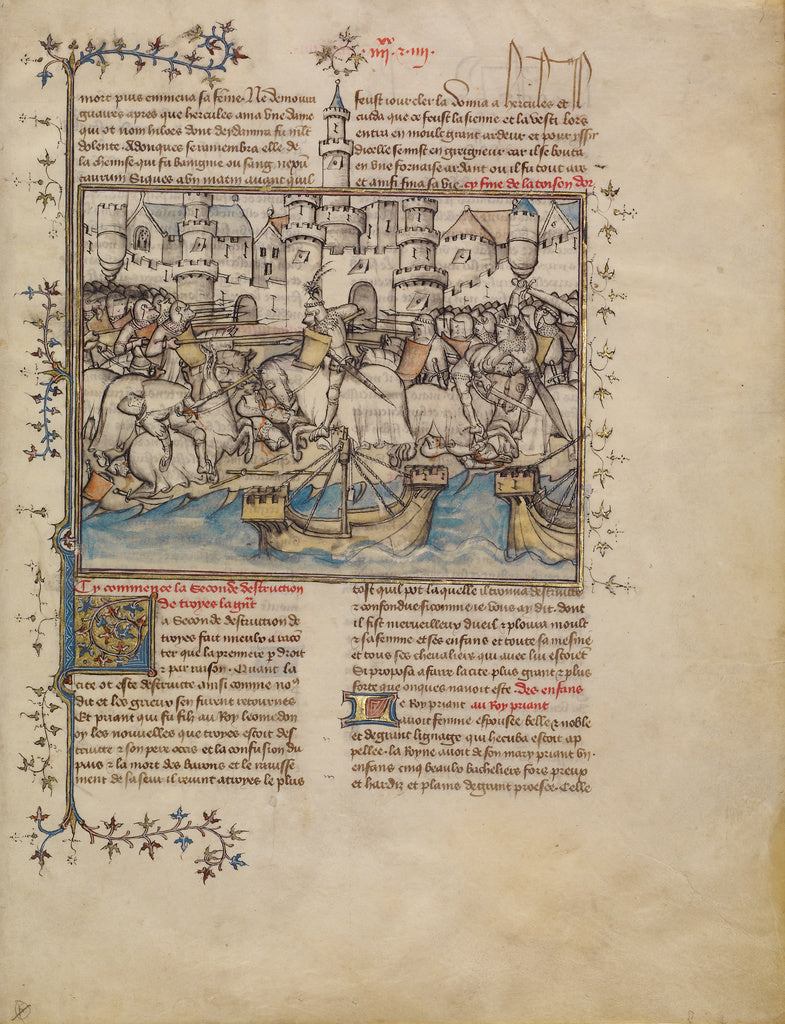 iiii.xx 7 iiii.
mort puis enmena sa feme. Ne demoura
guaires apres que hercules ama vne dame
qui ot nom hiloes dont deydamia fu mlt
dolente. Adonques se ramembra elle de
la chemise qui fu baingnie ou sang
Si ques a vn matin auant quil
se feust iour celer la donna a hercules et il
cuida que ce feust la sienne et la vesti. Lors
entra en moult grant ardeur et pour yssir
dicelle se mist en greigneur car il se bouta
en vne fornaise ardant ou il fu tout ars
et ainsi fina sa vie. cy fine de la toison dor.
Cy commence la Seconde destruction
de troyes la grant
La Seconde destruction de
troyes fait mieulx a racon
ter que la premiere par droit
et par raison. Quant la
cite ot este destruitte ainsi comme nous
dit et les grieux sen furent retournes
Et priant qui fu filz au Roy leomedon
oy les nouuelles que troyes estoit des
truitte 7 son pere occis et la confusion du
pais 7 la mort des barons et le rauisse
ment de sa seur il reuint a troyes le plus
tost quil pot laquelle il trouua destruitte
7 confondue si comme ie vous ay dit. dont
il fist merueilleux dueil 7 ploura moult
7 sa femme et ses enfans et toute sa mesme
et tous ses cheualiers qui auec lui estoiet
Si proposa a faire la cite plus grant 7 plus
forte que onques nauoit este. des enfans
Le Roy priant au Roy priant
auoit femme espousee belle 7 noble
et de grant lignage qui hecuba estoit ap
pellee. la Royne auoit de son mary priant
enfans cinq beaulx bacheliers fors preux
et hardiz et plains de grant proesce. Celle